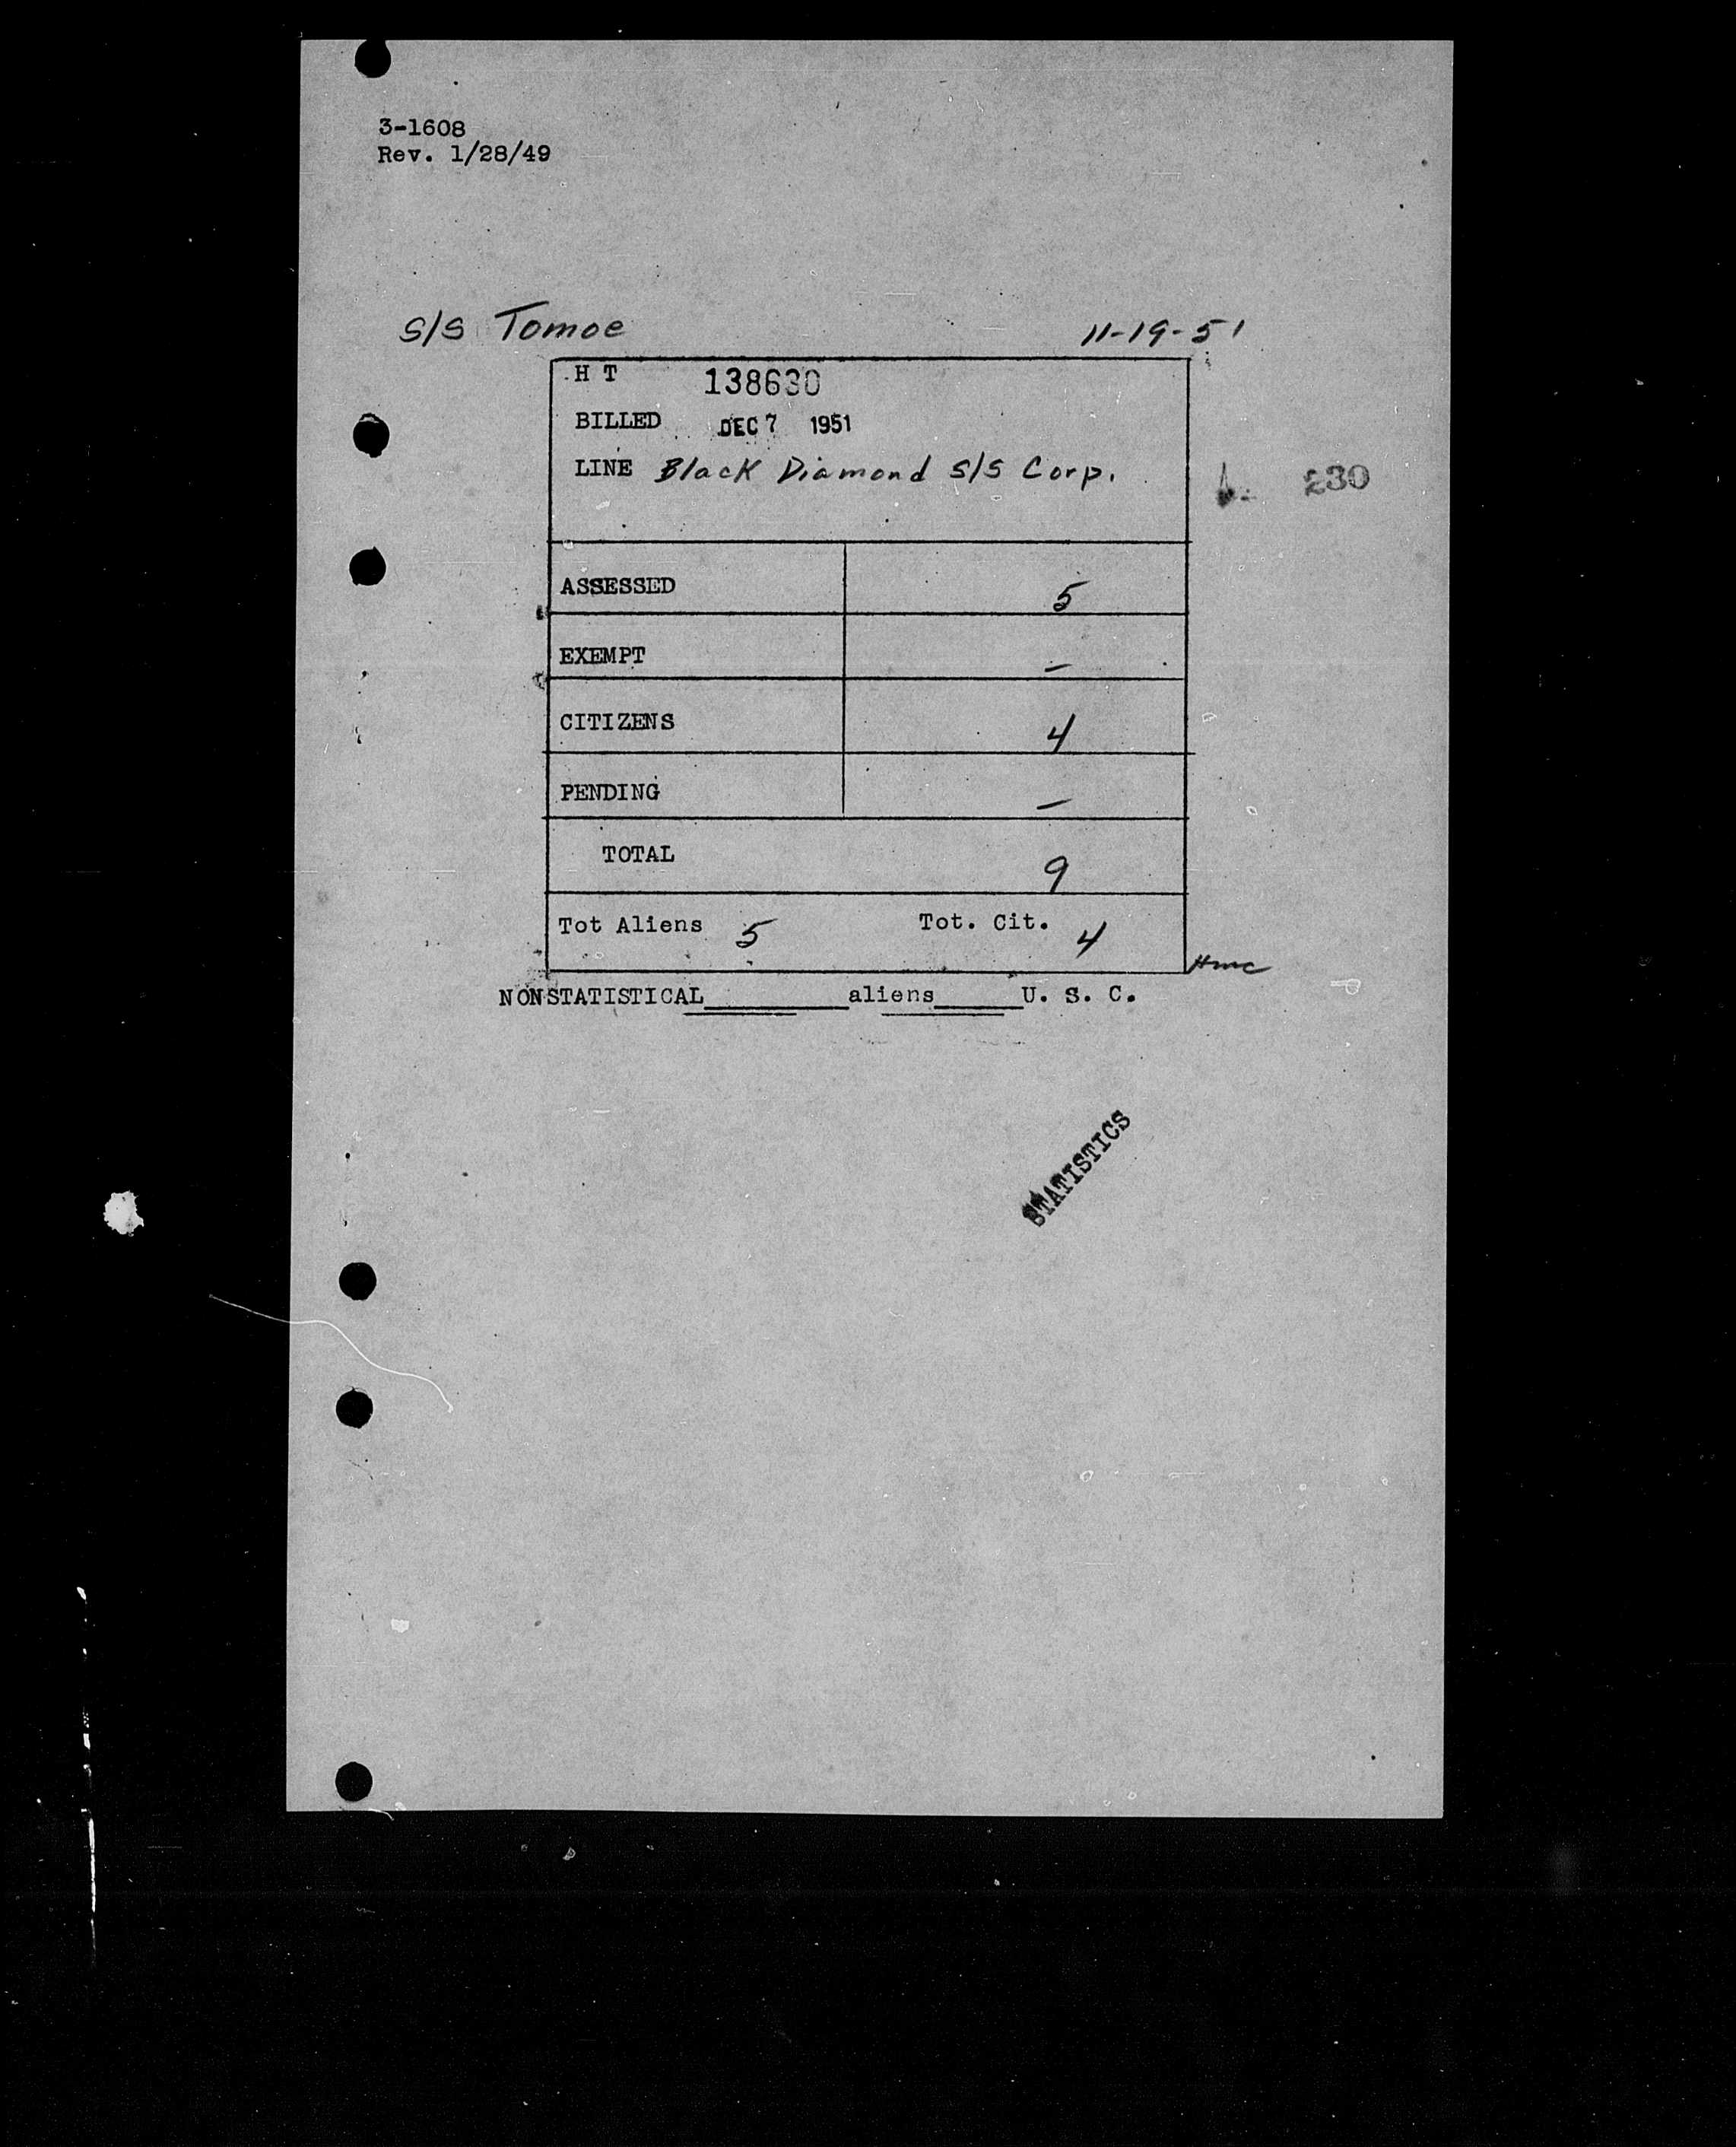 3-1608
Rev. 1/28/49
S/S Tomoe 11-19-51
H T 138630
BILLED DEC 7 1951
LINE Black Diamond S/S Corp.
ASSESSED 5
EXEMPT –
CITIZENS 4
PENDING –
TOTAL 9
Tot Aliens 5 Tot. Cit. 4
NONSTATISTICAL__________aliens______U. S. C.
STATISTICS